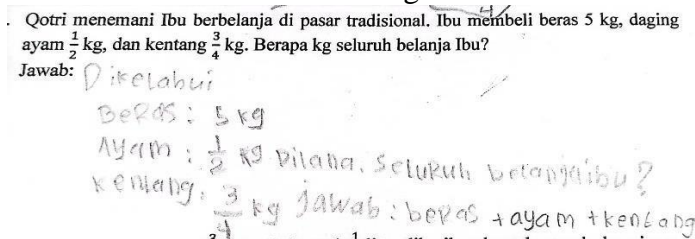 Qotri menemani Ibu berbelanja di pasar tradisional. Ibu membeli beras 5 kg, daging
ayam 1/2 kg, dan kentang 3/4 kg. Berapa kg seluruh belanja Ibu?
Jawab: Dikelabui
Beras : 5 kg
Ayam : 1/2 kg Dilana. Seluruh belanja ibu?
kentang. 3/4 kg Jawab : beras + ayam + kentang